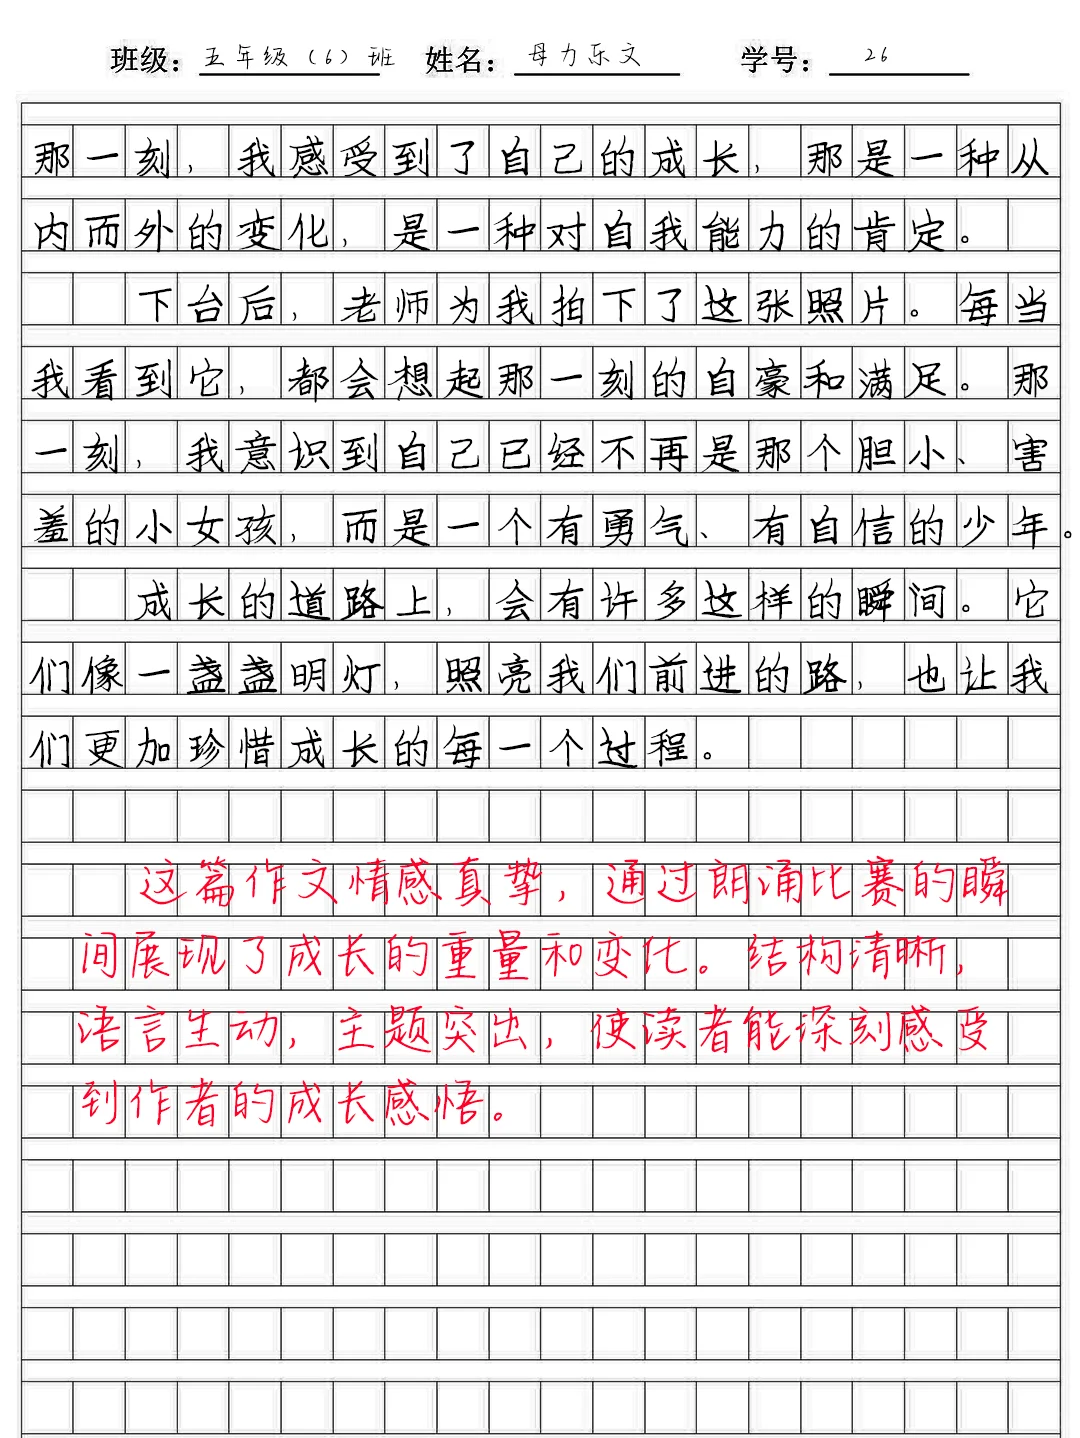 班级：五年级（6）班 姓名：母力乐文 学号：26
那一刻，我感受到了自己的成长，那是一种从
内而外的变化，是一种对自我能力的肯定。
下台后，老师为我拍下了这张照片。每当
我看到它，都会想起那一刻的自豪和满足。那
一刻，我意识到自己已经不再是那个胆小、害
羞的小女孩，而是一个有勇气、有自信的少年。
成长的道路上，会有许多这样的瞬间。它
们像一盏盏明灯，照亮我们前进的路，也让我
们更加珍惜成长的每一个过程。
这篇作文情感真挚，通过朗涌比赛的瞬
间展现了成长的重量和变化。结构清晰，
语言生动，主题突出，使读者能深刻感受
到作者的成长感悟。